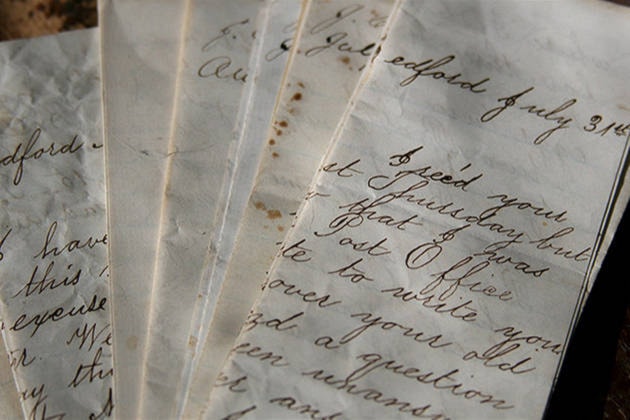 dford
I have
this
excuse
r. We
ay th
Au
edford July 31st
I rec'd your
st Thursday but
r that I was
Post Office
te to write you
over your old
nd a question
een unansw
er ans